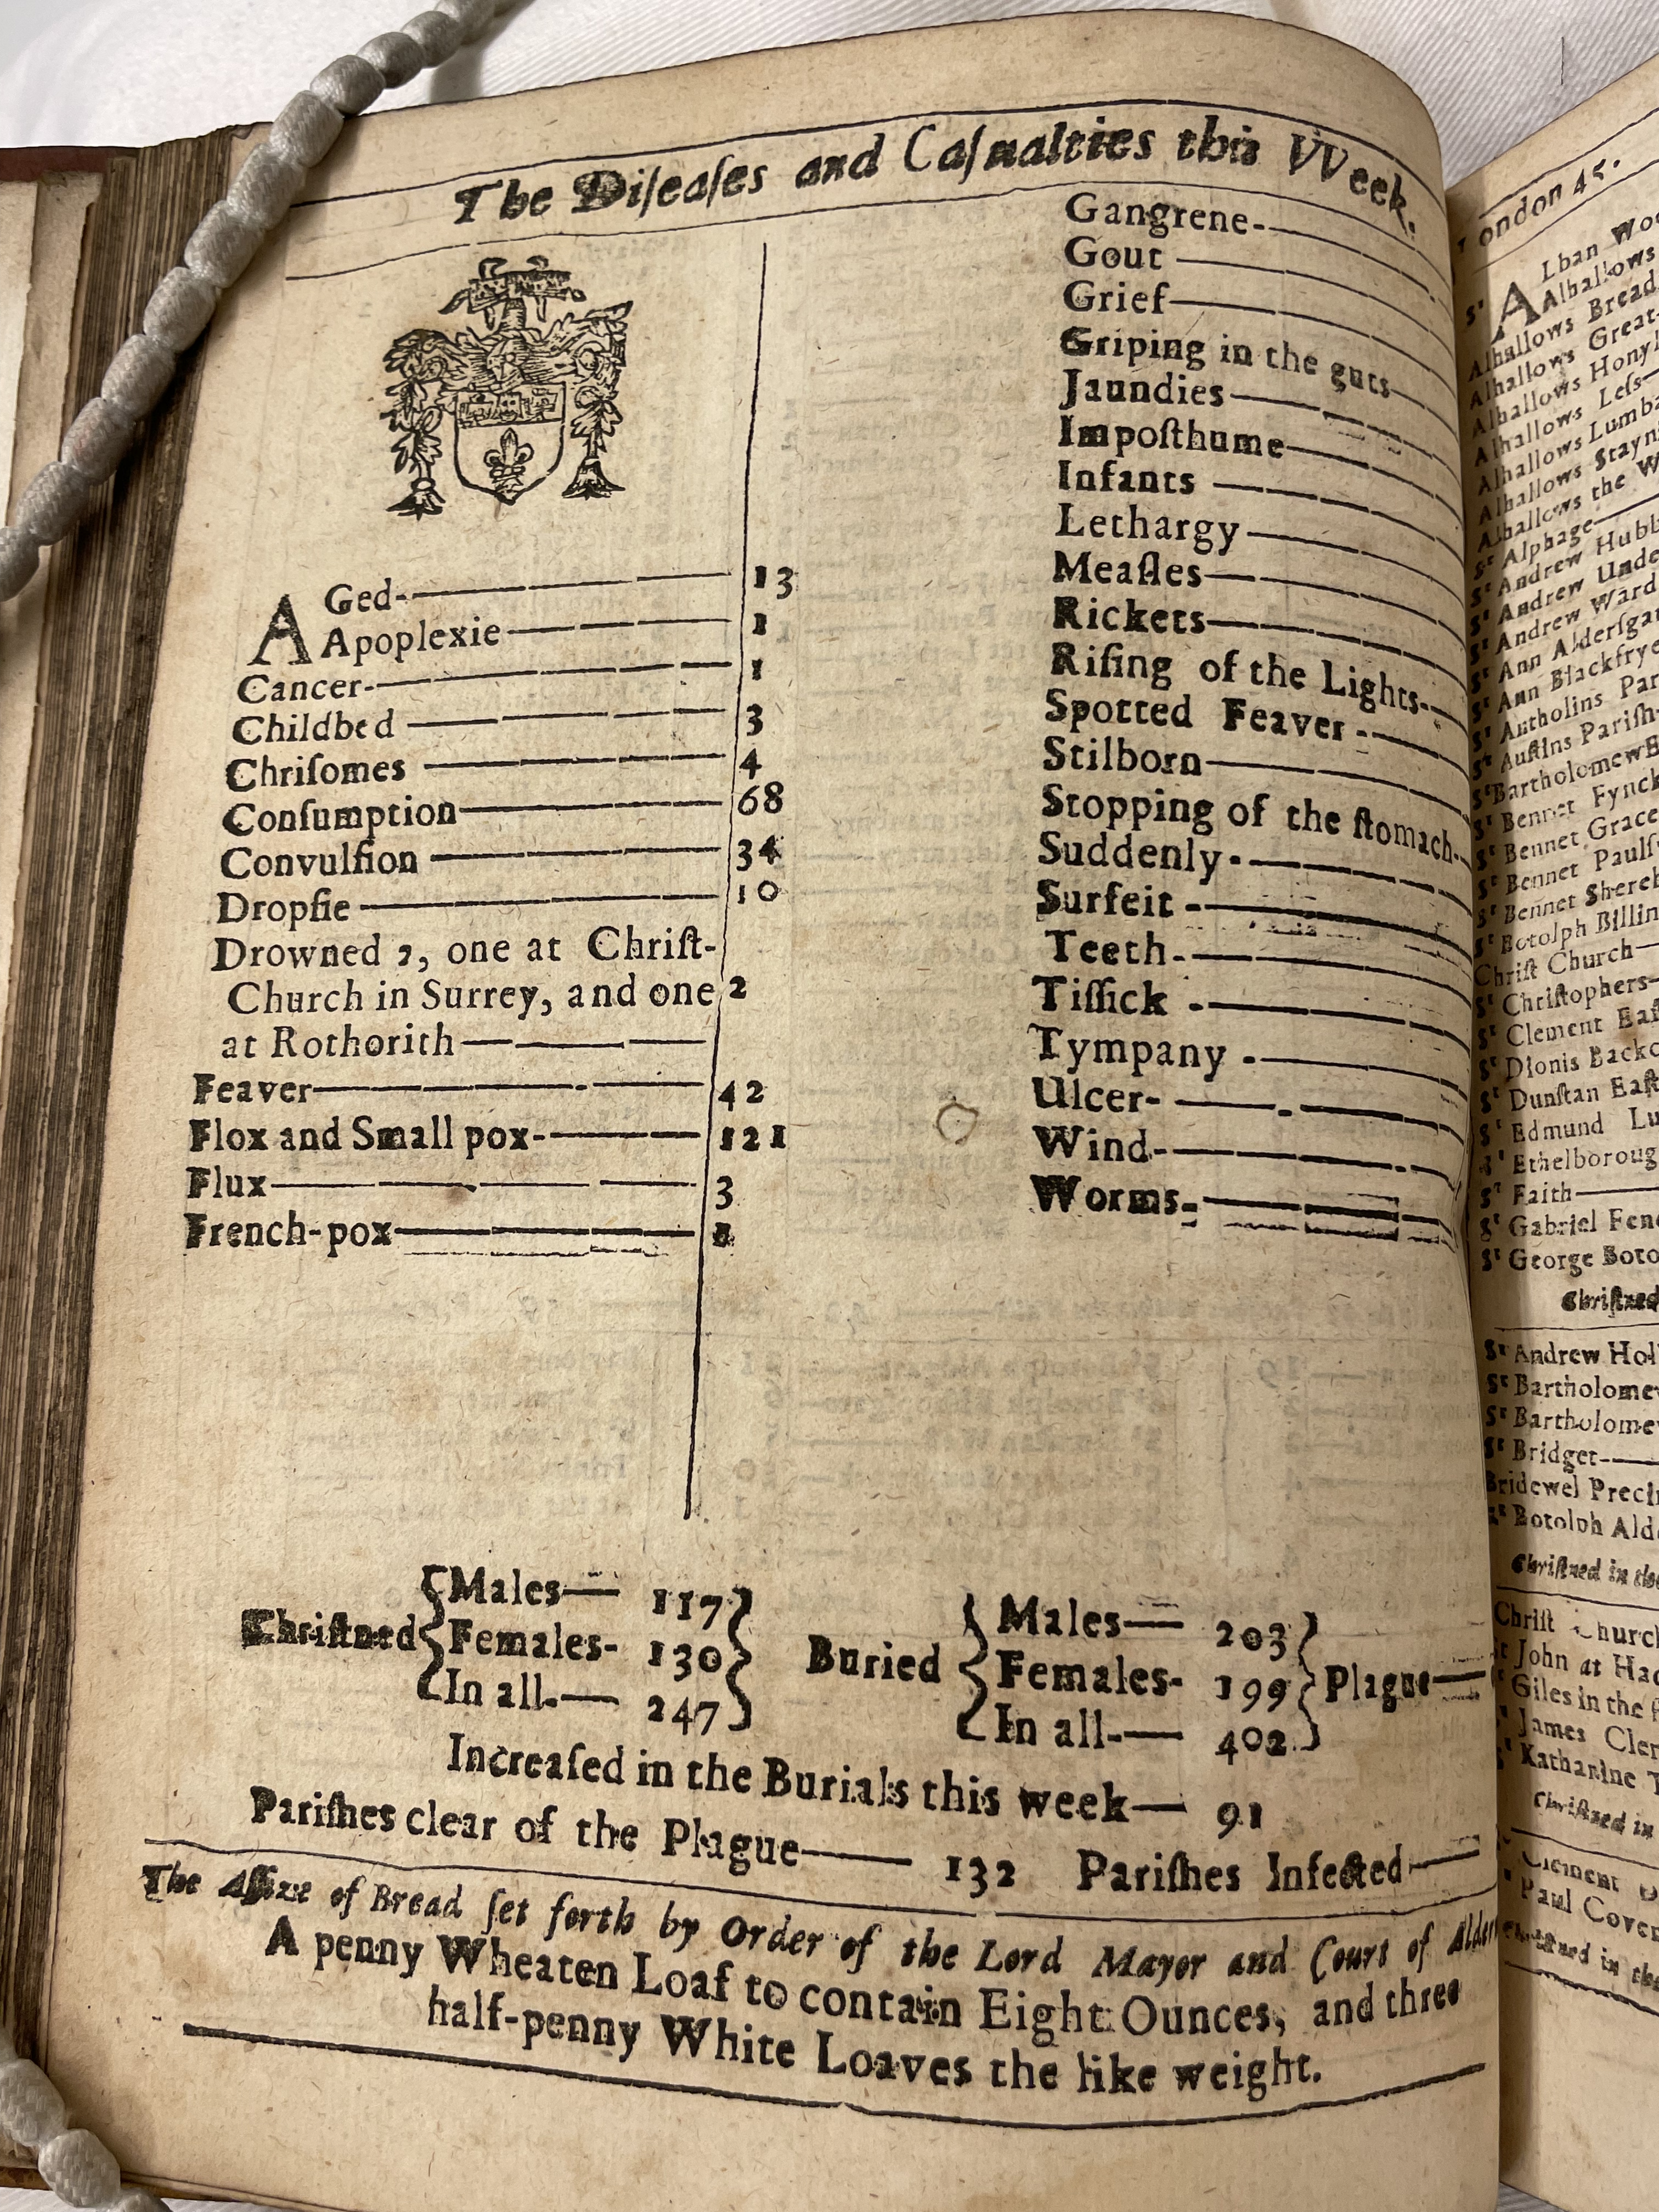 The Diſeaſes and Caſualties this VVeek.
AGed 13
Apoplexie 1
Cancer 1
Childbed 3
Chriſomes 4
Conſumption 68
Convulſion 34
Dropſie 10
Drowned 2, one at Chriſt-
Church in Surrey, and one 2
at Rothorith
Feaver 42
Flox and Small pox 121
Flux 3
French-pox
Gangrene
Gout
Grief
Griping in the guts
Jaundies
Impoſthume
Infants
Lethargy
Meaſles
Rickets
Riſing of the Lights
Spotted Feaver
Stilborn
Stopping of the ſtomach
Suddenly
Surfeit
Teeth
Tiſſick
Tympany
Ulcer
Wind
Worms
Chriſtned Males 117
Females 130
In all 247
Buried Males 203
Females 199
In all 402
Plague
Increaſed in the Burials this week 91
Pariſhes clear of the Plague 132 Pariſhes Infected
The Aſſize of Bread ſet forth by Order of the Lord Mayor and Court of
A penny Wheaten Loaf to contain Eight Ounces, and three
half-penny White Loaves the like weight.
ondon 45.
Sᵗ ALban
Alhallows
Alhallows Bread
Alhallows Great
Alhallows
Alhallows Leſs
Alhallows
Alhallows
Alhallows the
Sᵗ Alphage
Sᵗ Andrew
Sᵗ Andrew
Sᵗ Andrew
Sᵗ Ann
Sᵗ Ann
Sᵗ Antholins
Sᵗ Auſtins Pariſh
Sᵗ
Sᵗ Bennet
Sᵗ Bennet
Sᵗ Bennet
Sᵗ Bennet
Sᵗ Botolph
Chriſt Church
Sᵗ Chriſtophers
Sᵗ Clement
Sᵗ Dionis
Sᵗ Dunſtan
Sᵗ Edmund
Sᵗ
Sᵗ Faith
Sᵗ Gabriel
Sᵗ George
Chriſtned
Sᵗ Andrew
Sᵗ
Sᵗ
Sᵗ Bridget
Bridewel
Sᵗ Botolph
Chriſtned in the
Chriſt
John at
Giles in the
James
Katharine
Chriſtned in
Clement
Paul
in the